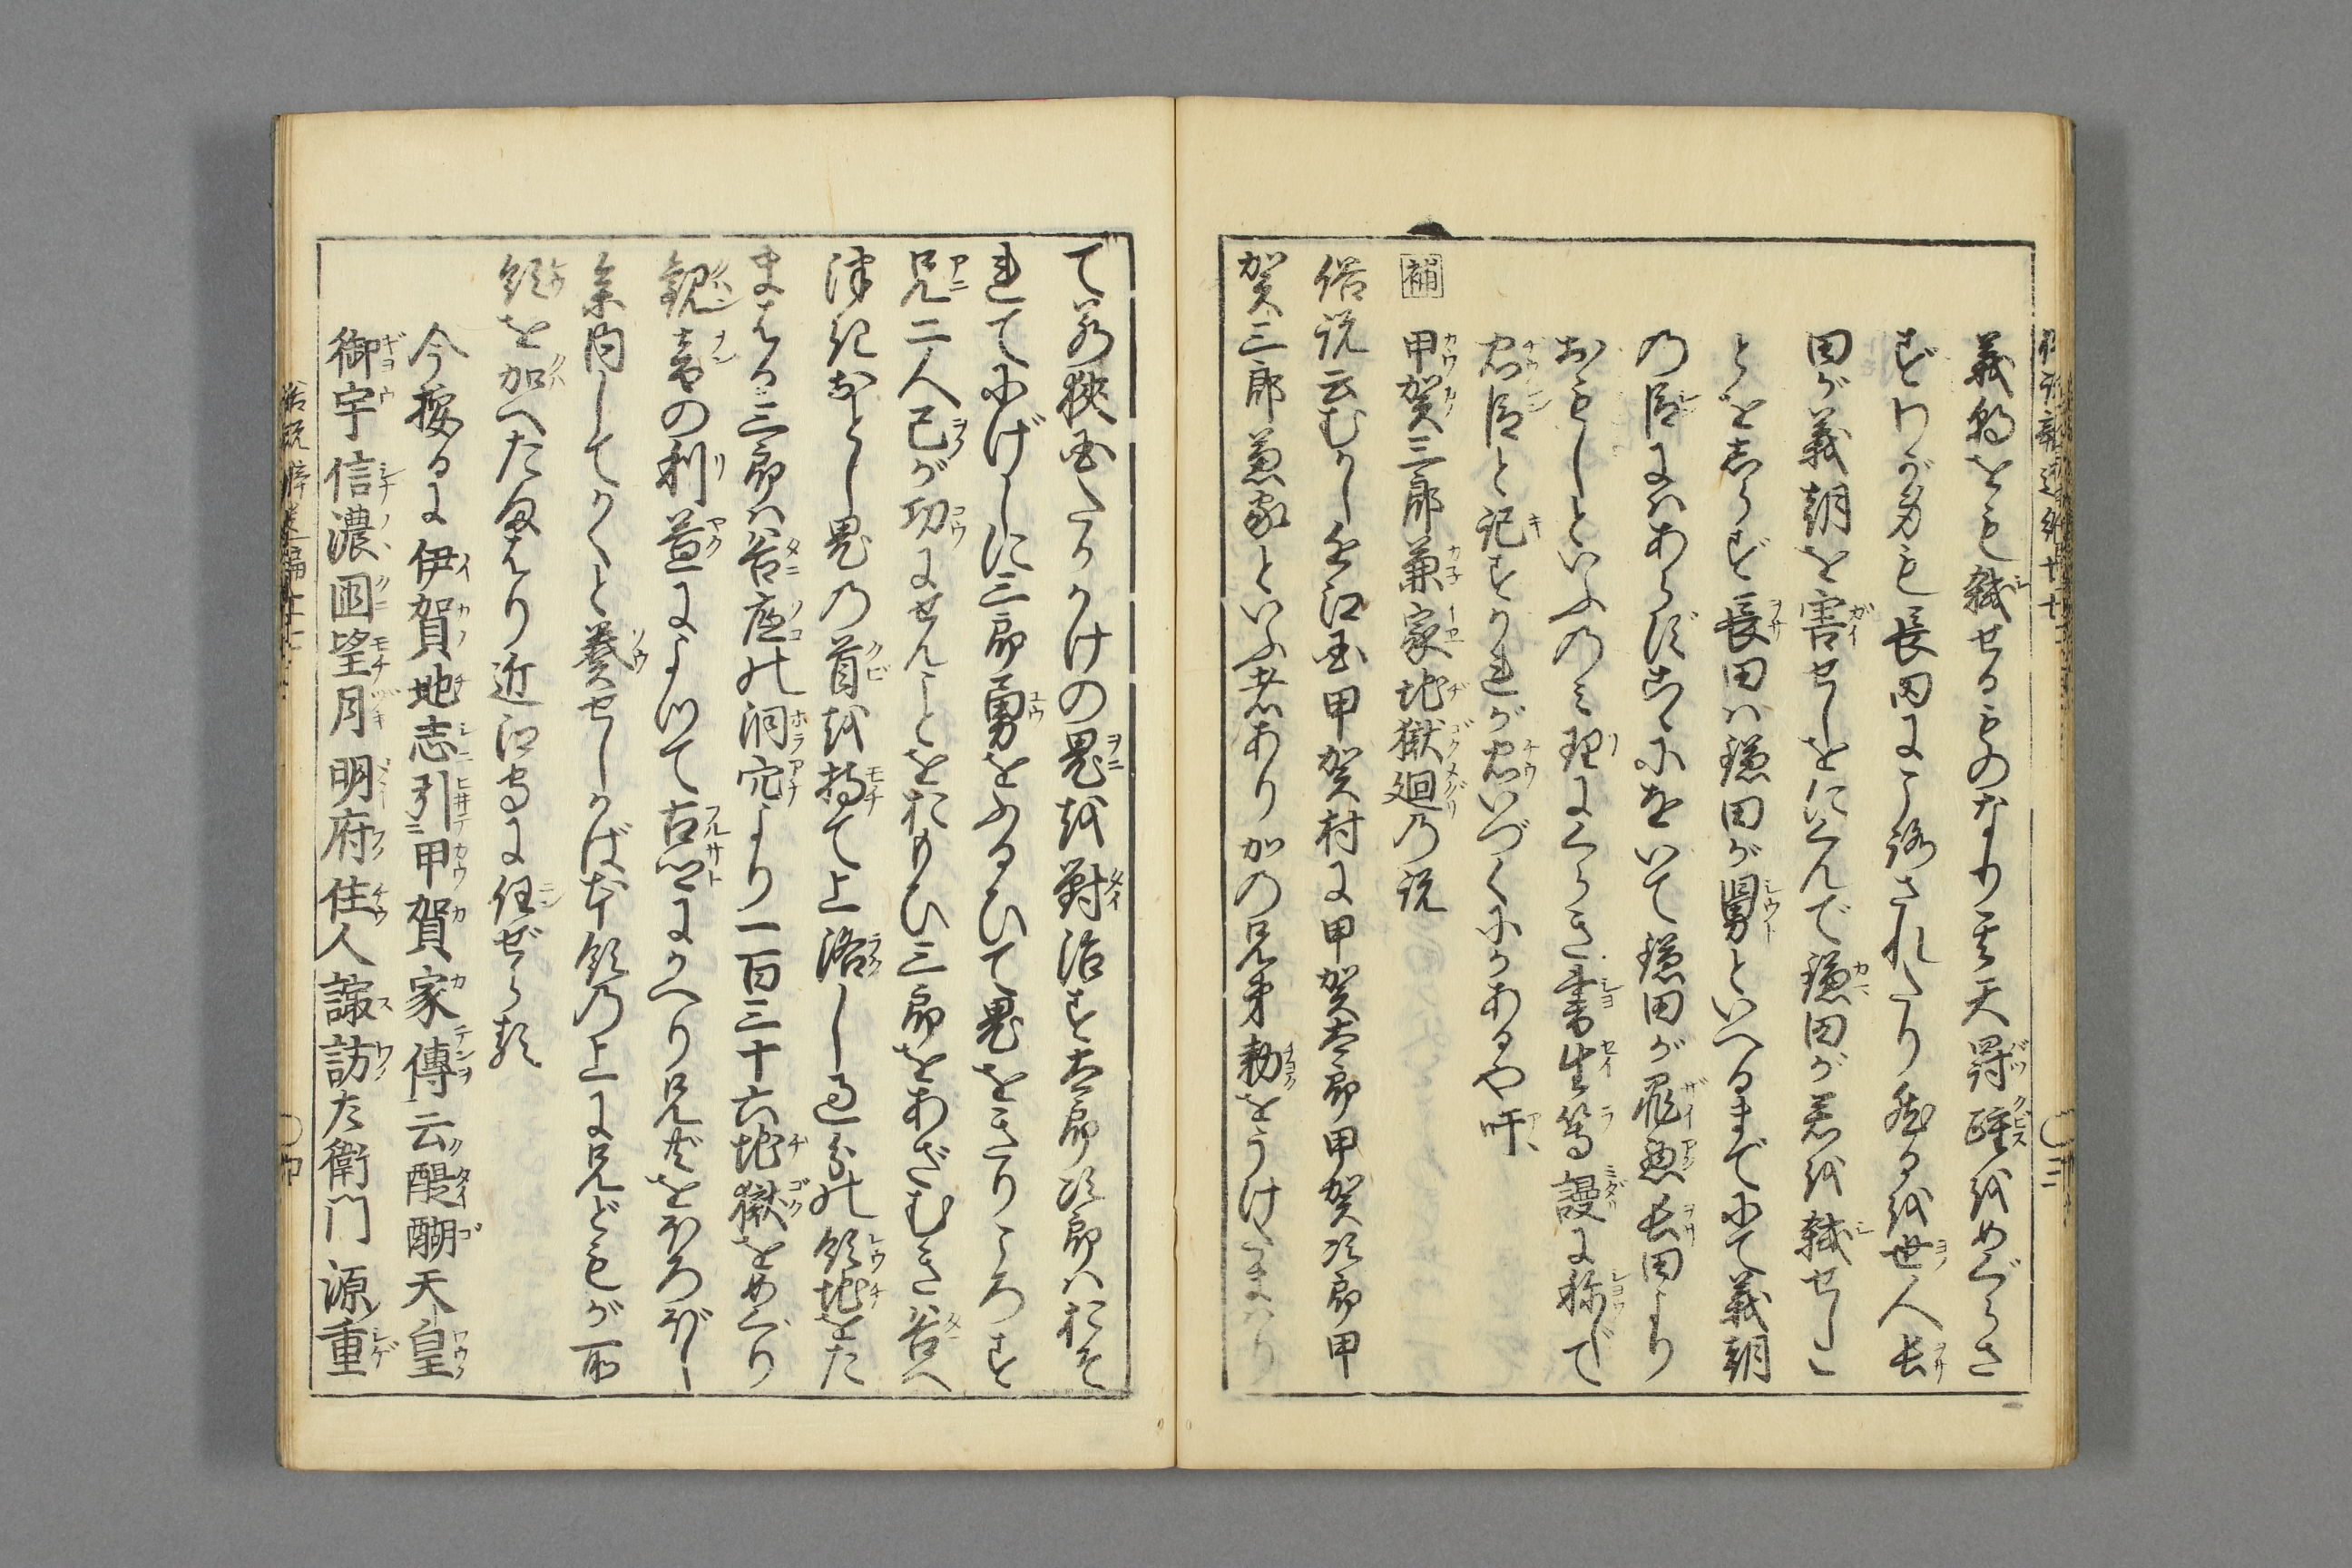 義朝をも弑せるものなり其天罰踵をめぐらさ
ずわが身も長田にころされたり然るを世人長
田が義朝を害せしをにくんで鎌田が君を弑せしこ
とをしらず長田は鎌田が舅といへるまでにて義朝
の臣にはあらずこゝにおいて鎌田が罪悪長田より
おもしといふのみ理にくらき書生等謾に称で
忠臣と記すかれが忠いづくにかあるや吁
補 甲賀三郎兼家地獄廻の説
俗説云むかし近江国甲賀村に甲賀太郎甲賀次郎甲
賀三郎兼家といふ者あり加の兄弟勅をうけたまはり
て若狭国たかかけの鬼を対治す太郎次郎はおそ
れてにげしに三郎勇をふるひて鬼をきりころす
兄二人己が功にせんことをおもひ三郎をあざむき谷へ
つきおとし鬼の首を持て上洛し過分の領地をた
まはる三郎は谷底の洞穴より一百三十六地獄をめぐり
観音の利益によつて古郷にかへり兄共をほろぼし
参内してかくと奏せしかば本領の上に兄どもが所
領を加へたまはり近江守に任ぜらる
今按るに伊賀地志引甲賀家傳云醍醐天皇
御宇信濃國望月明府住人諏訪左衛門源重